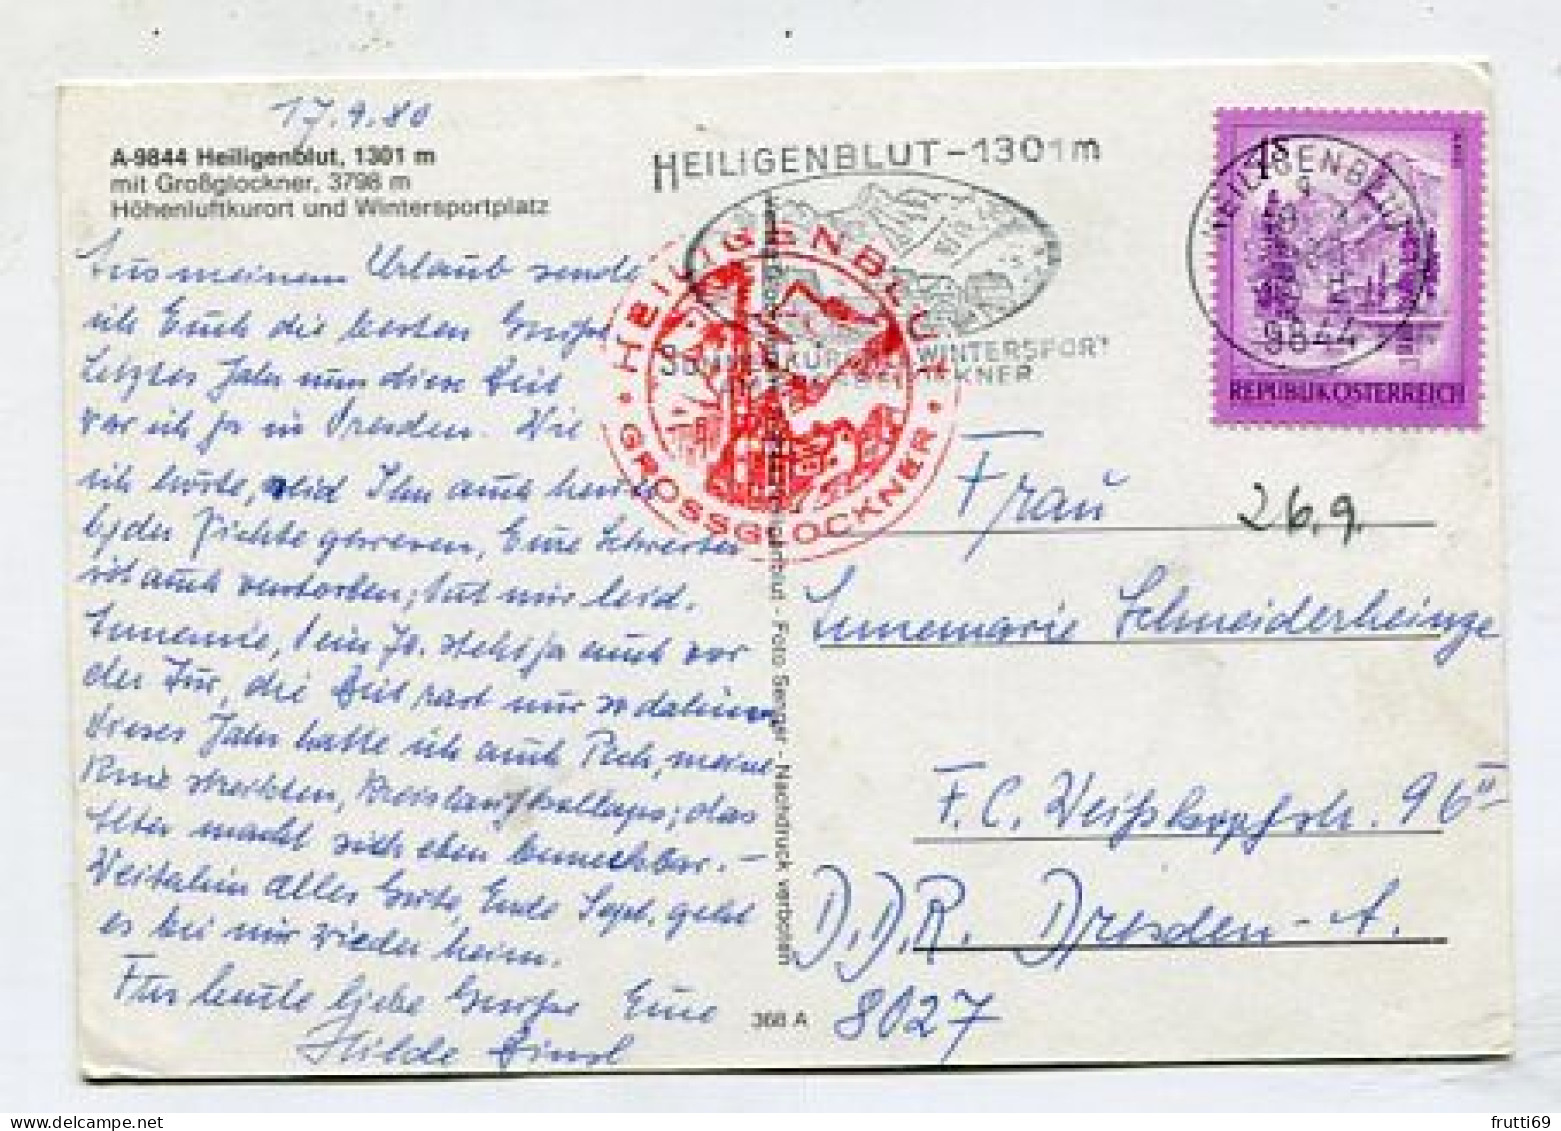 17.9.80
A-9844 Heiligenblut, 1301 m
mit Großglockner, 3798 m
Höhenluftkurort und Wintersportplatz
Aus meinem Urlaub sende
ich Euch die besten Grüße
Letztes Jahr um diese Zeit
war ich ja in Dresden. Wie
ich hörte, seid Ihr auch heuer
bei der Fichte gewesen, Eure Schwester
ist auch verstorben, tut mir leid.
Annemarie, Dein 70. steht ja auch vor
der Tür, die Zeit rast nur so dahin
dieses Jahr hatte ich auch Pech, meine
Knie streikten, Kreislaufkollaps; das
Alter macht sich eben bemerkbar. –
Weiterhin alles Gute, Ende Sept. geht
es bei mir wieder heim.
Für heute liebe Grüße Eure
Hilde
HEILIGENBLUT – 1301 m
WINTERSPORT
HEILIGENBLUT
GROSSGLOCKNER
Foto Senger - Nachdruck verboten
368 A
HEILIGENBLUT
9844
REPUBLIK ÖSTERREICH
Frau
26.9.
Annemarie Schneiderheinze
F. C. Weißkopfstr. 96 II
D.D.R. Dresden-A.
8027
frutti69